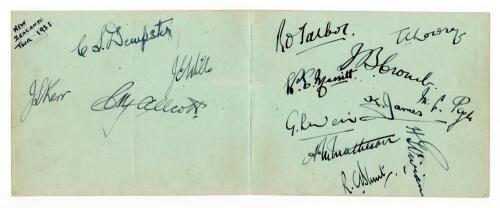 NEW
ZEALAND
TOUR 1931
C S Dempster
J E Mills
J L Kerr
C F W Allcott
R O Talbot
T C Lowry
I B Cromb
W E Merritt
K C James
M L Page
G L Weir
A M Matheson
H G Vivian
R. C. Blunt.